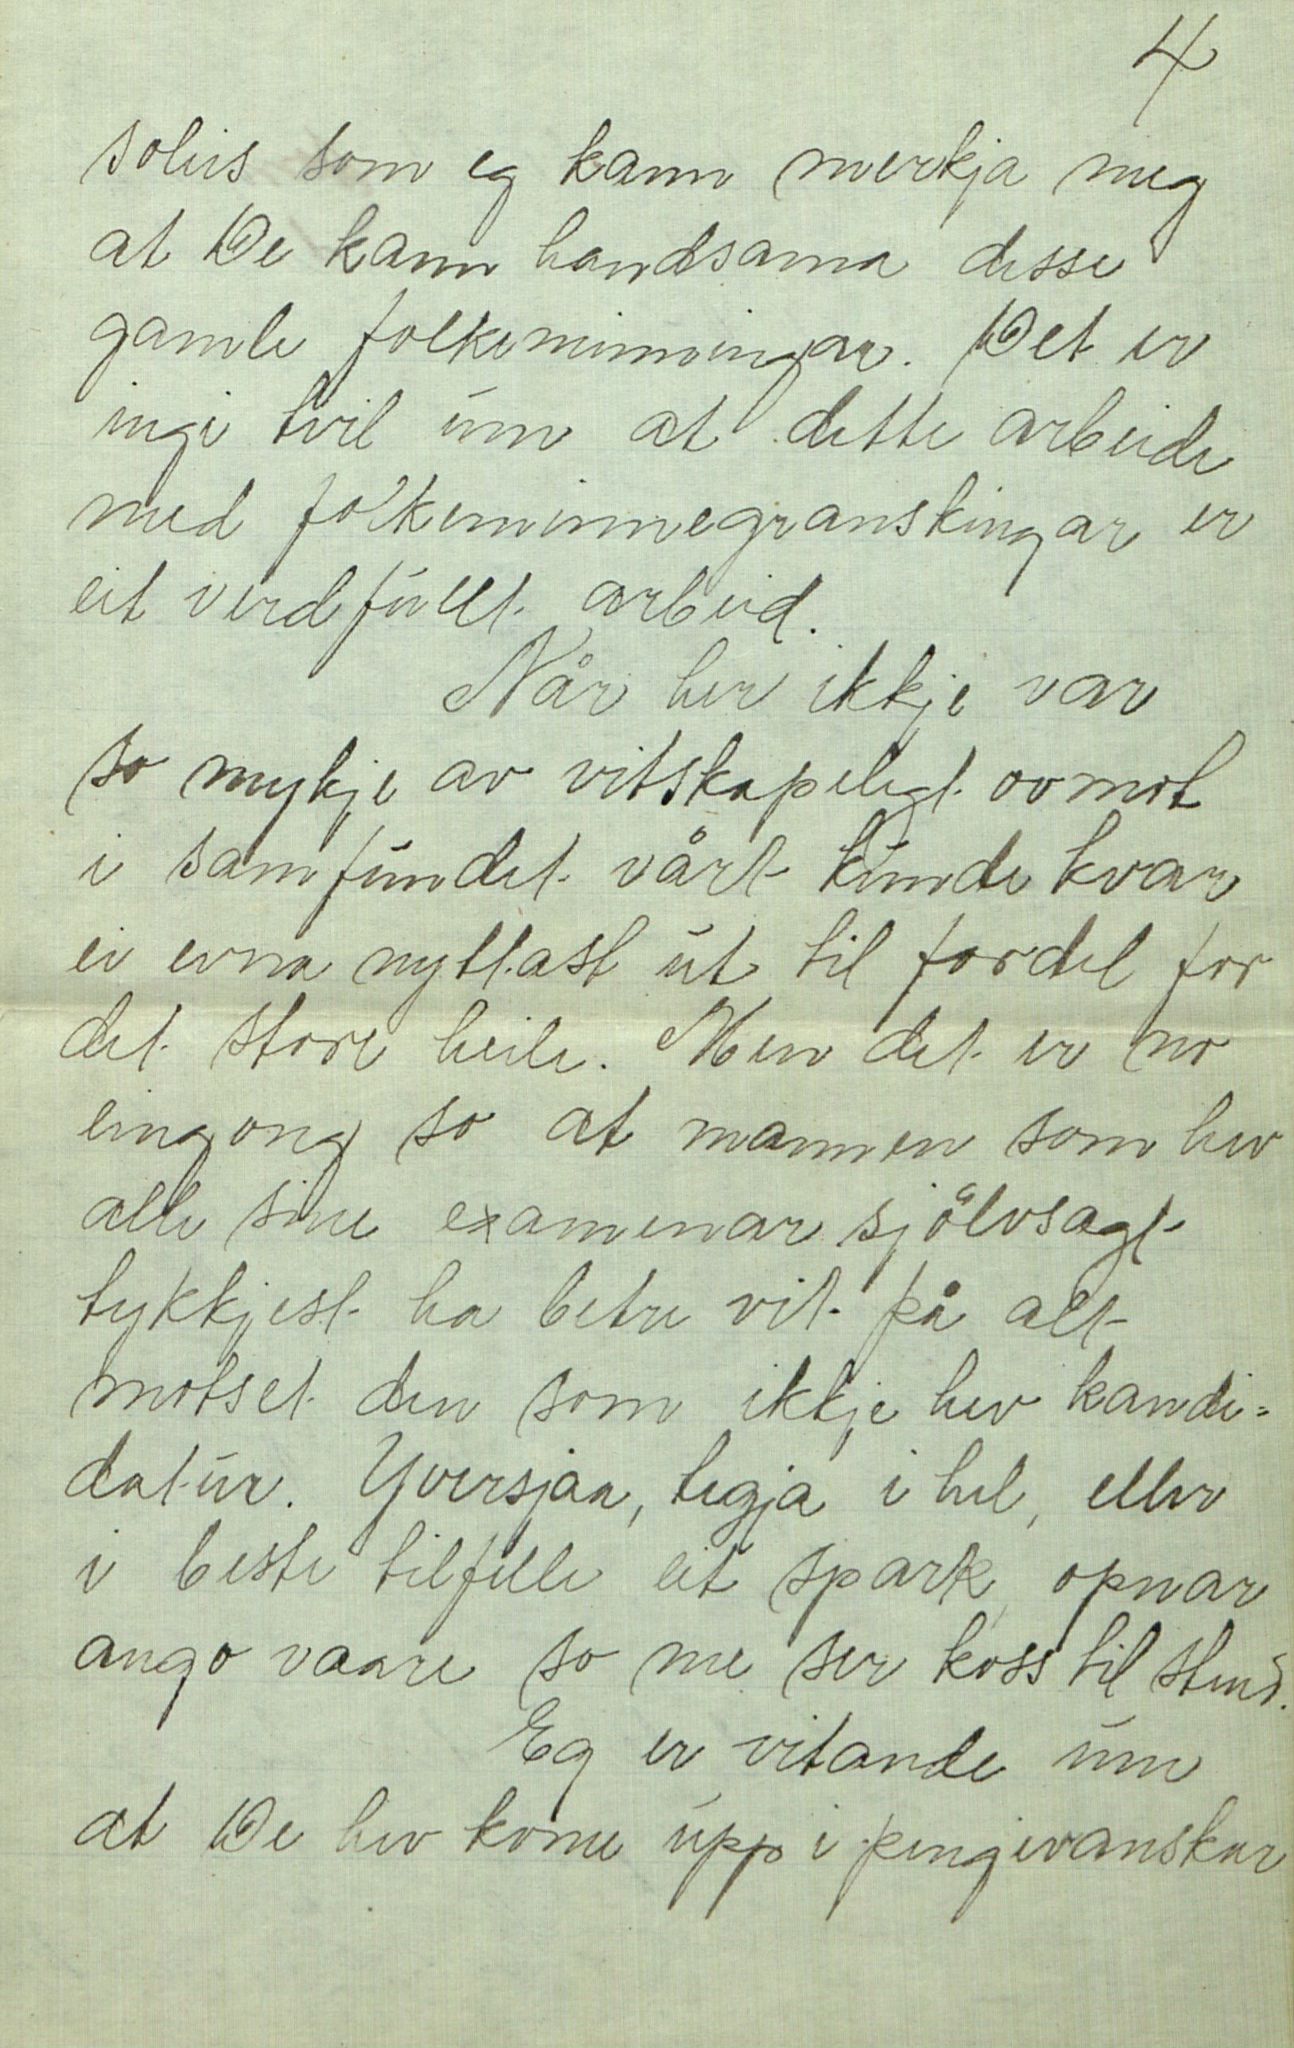 4
soleis som eg kann merkja meg
at De kann handsama desse
gamle folkeminningar. Det er
ingi tvil um at dette arbeide
med folkeminnegranskingar er
eit verdfullt arbeid.
Når her ikkje var
so mykje av vitskapelegt ovmot
i samfundet vårt kunde kvar
ei evna nyttast ut til fordel for
det store heile. Men det er no
eingong so at mannen som hev
alle sine examenar sjölvsagt
tykkjest ha betre vit på alt
motset den som ikkje hev kandi=
datur. Yversjaa, tegja i hel, eller
i beste tilfelle eit spark, opnar
augo vaare so me ser koss til stend.
Eg er vitande um
at De hev kome upp i pengevanskar